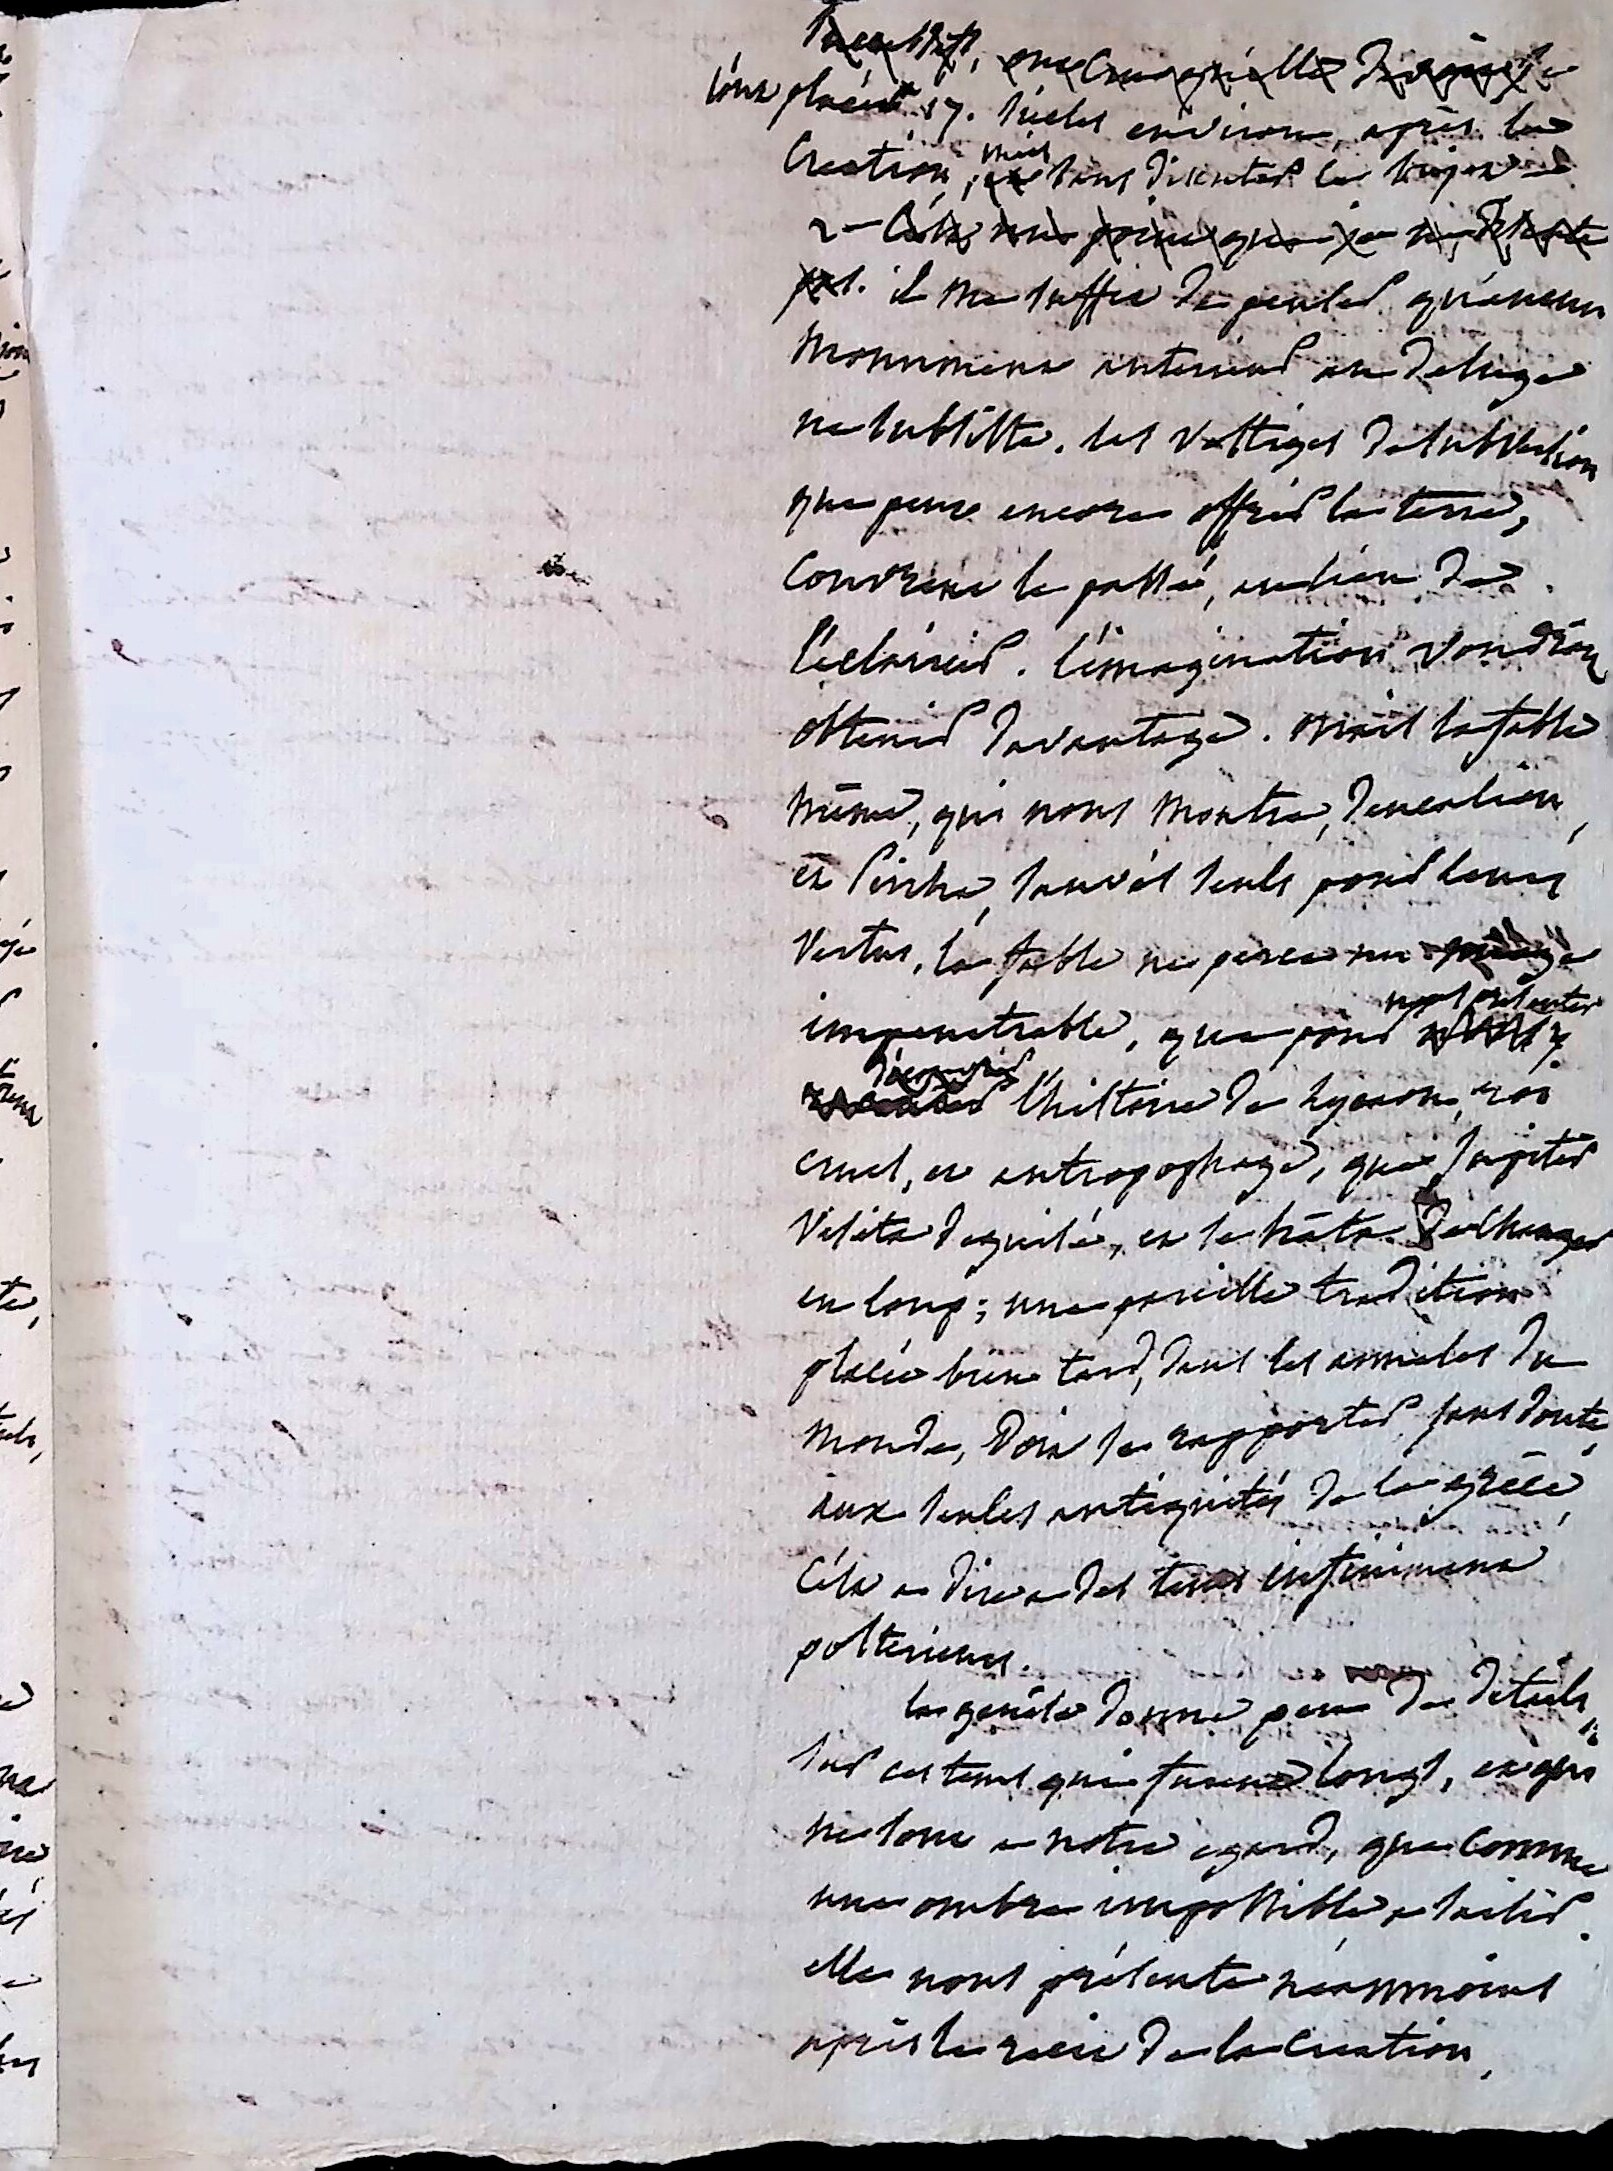 sont placés 17. siecles environ, après la
Creation, mais sans discuter le sujet
2- Céla
pas. il me suffit de penser qu'aucun
monument anterieur au deluge
ne subsiste. les vestiges de subversion
que peut encore offrir la terre,
couvrent le passé, au lieu de
l'éclaircir. l'imagination voudroit
obtenir davantage. mais la fable
même, qui nous montre, deucalion,
et Pirrha, sauvés seuls pour leurs
vertus, la fable ne perce un
impenetrable, que pour nous presenter
l'histoire de Lycaon, roi
cruel, et antropophage, que Jupiter
visita deguisé, et se hâta de changer
en loup; une pareille tradition
placée bien tard, dans les annales du
monde, doit se rapporter, sans doute,
aux seules antiquités de la grèce,
c'ést a dire a des tems infiniment
posterieurs.
la genèse donne peu de details,
sur ces tems qui furent longs, et qui
ne sont a notre egard, que comme
une ombre impossible a saisir.
elle nous présente néanmoins
après le recit de la Creation,